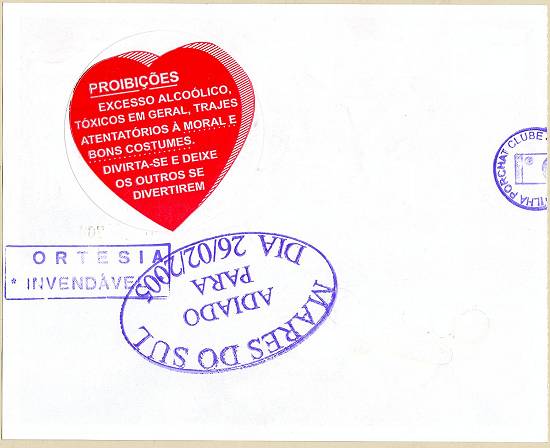 PROIBIÇÕES
EXCESSO ALCOÓLICO,
TÓXICOS EM GERAL, TRAJES
ATENTATÓRIOS À MORAL E
BONS COSTUMES.
DIVIRTA-SE E DEIXE
OS OUTROS SE
DIVERTIREM
ILHA PORCHAT CLUBE
ORTESIA
* INVENDÁVE
MARES DO SUL
ADIADO
PARA
DIA 26/02/2005